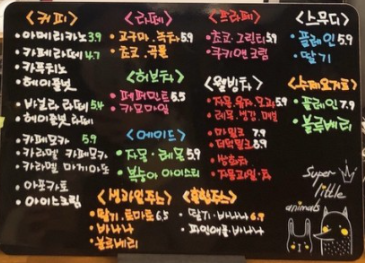 <커피>
•아메리카노 3.9
•카페라떼 4.7
•카푸치노
•헤이즐넛
•바닐라 라떼 5.4
•헤이즐넛 라떼
•카페모카 5.9
•카라멜 카페모카
•카라멜 마키아또
•아포카토
•아이스크림
<라떼>
•고구마. 녹차 5.9
•초코. 곡물
<허브차>
•페퍼민트 5.5
•카모마일
<에이드>
•자몽·레몬 5.9
•복숭아 아이스티
<생과일주스>
•딸기. 토마토 6.5
•바나나
•블루베리
<프라페>
•초코. 그린티 5.9
•쿠키앤크림
<웰빙차>
•자몽. 유자. 모과 5.9
•레몬. 생강
•마밀크 7.9
•쌍화차
<혼합주스>
•딸기·바나나 6.9
•파인애플·바나나
<스무디>
•플레인 5.9
•딸기
<수제요거트>
•플레인 7.9
•블루베리
Super
little
animals